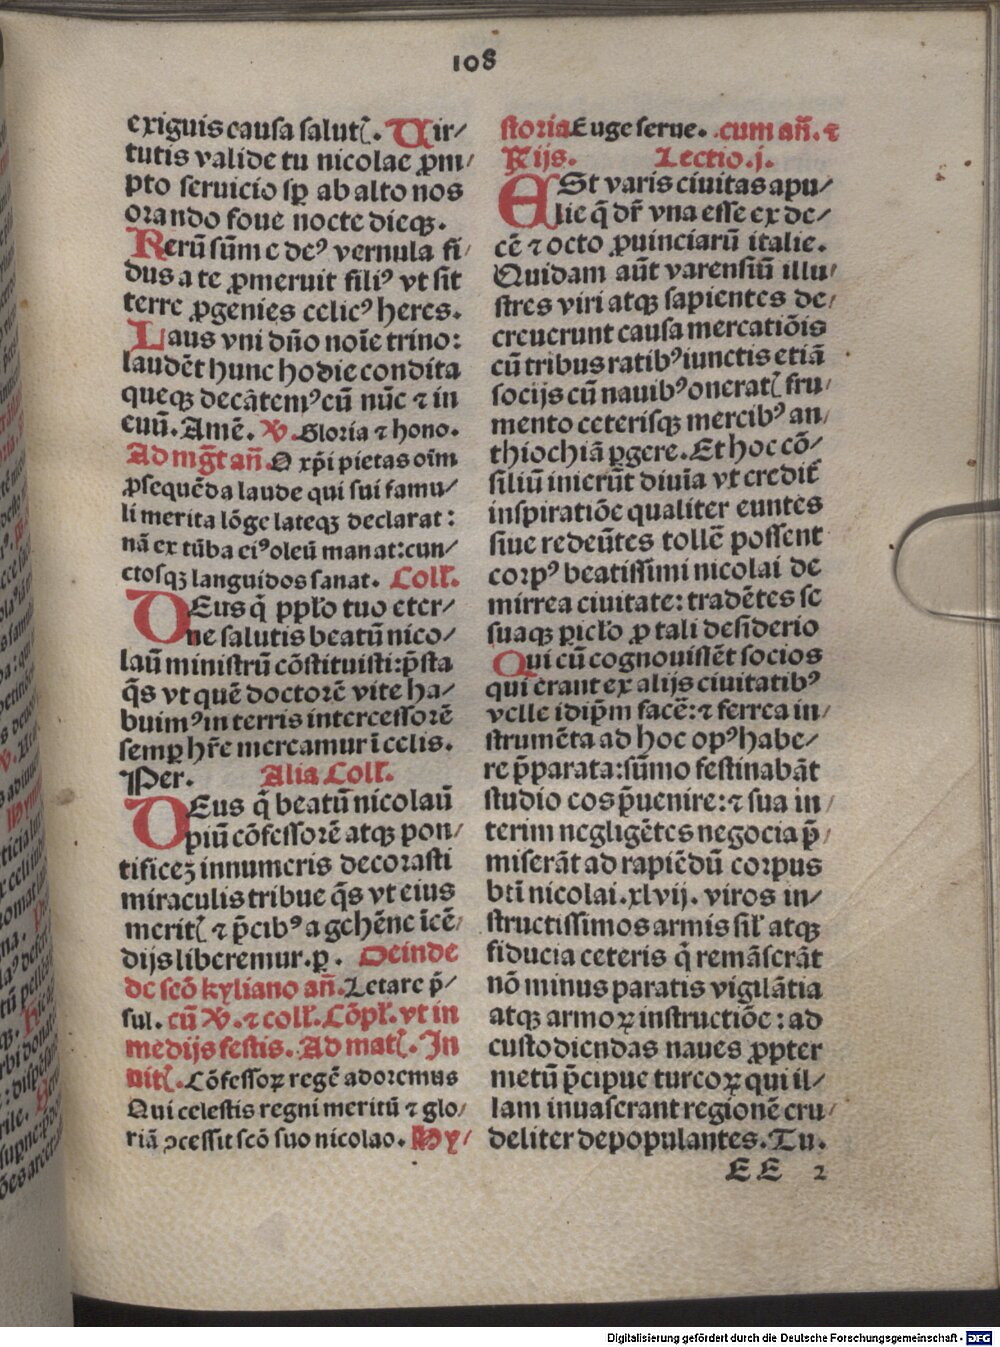 108
exiguis causa salutꝭ. Uir/
tutis valide tu nicolae ꝓm/
pto seruicio sꝑ ab alto nos
orando foue nocte dieqꝫ.
Rerū sūme deꝰ vernula fi/
dus a te ꝓmeruit filiꝰ vt sit
terre ꝓgenies celicꝰ heres.
Laus vni dn̄o noīe trino:
laudēt hunc hodie condita
queqꝫ decātemꝰ cū nūc ⁊ in
euū. Amē. ℣. Gloria ⁊ hono.
Ad mg̅t an̄. O xp̄i pietas oīm
ꝓsequēda laude qui sui famu/
li merita lōge lateqꝫ declarat:
nā ex tūba eiꝰ oleū manat: cun/
ctosqꝫ languidos sanat. Coll̄.
DEus q̄ pplo tuo eter/
ne salutis beatū nico/
laū ministrū cōstituisti: p̄sta
q̄s vt quē doctorē vite ha/
buimꝰ in terris intercessorē
semꝑ hr̄e mereamur ī celis.
Per. Alia Coll̄.
DEus q̄ beatū nicolaū
piū cōfessorē atqꝫ pon/
tificeꝫ innumeris decorasti
miraculis tribue q̄s vt eius
meritꝭ ⁊ p̄cibꝰ a gehēne īcē/
dijs liberemur. ꝑ. Deinde
de scō kyliano an̄. Letare p̄/
sul. cū ℣. ⁊ coll̄. Cōpl̄. vt in
medijs festis. Ad matꝭ. In
uitꝭ. Cōfessoꝝ regē adoremus
Qui celestis regni meritū ⁊ glo/
riā ꝯcessit scō suo nicolao. Hy/
storia Euge serue. cum an̄. ⁊
Rijs. Lectio.j.
ESt varis ciuitas apu/
lie q̄ dr̄ vna esse ex de/
cē ⁊ octo ꝓuinciarū italie.
Quidam aūt varensiū illu/
stres viri atqꝫ sapientes de/
creuerunt causa mercatiōis
cū tribus ratibꝰ iunctis etiā
socijs cū nauibꝰ oneratꝭ fru/
mento ceterisqꝫ mercibꝰ an/
thiochiā ꝑgere. Et hoc cō/
siliū inierūt diuīa vt credit̄
inspiratiōe qualiter euntes
siue redeūtes tollē possent
corpꝰ beatissimi nicolai de
mirrea ciuitate: tradētes se
suaqꝫ ꝑiclo ꝓ tali desiderio
Qui cū cognouissēt socios
qui erant ex alijs ciuitatibꝰ
velle idip̄m facē: ⁊ ferrea in/
strumēta ad hoc opꝰ habe/
re p̄parata: sūmo festinabāt
studio eos p̄uenire: ⁊ sua in/
terim negligētes negocia p̄/
miserāt ad rapiēdū corpus
btī nicolai. xlvij. viros in/
structissimos armis sil̄ atqꝫ
fiducia ceteris q̄ remāserāt
nō minus paratis vigilātia
atqꝫ armoꝝ instructiōe: ad
custodiendas naues ꝓpter
metū p̄cipue turcoꝝ qui il/
lam inuaserant regionē cru/
deliter depopulantes. Tu.
EE 2
Digitalisierung gefördert durch die Deutsche Forschungsgemeinschaft - DFG